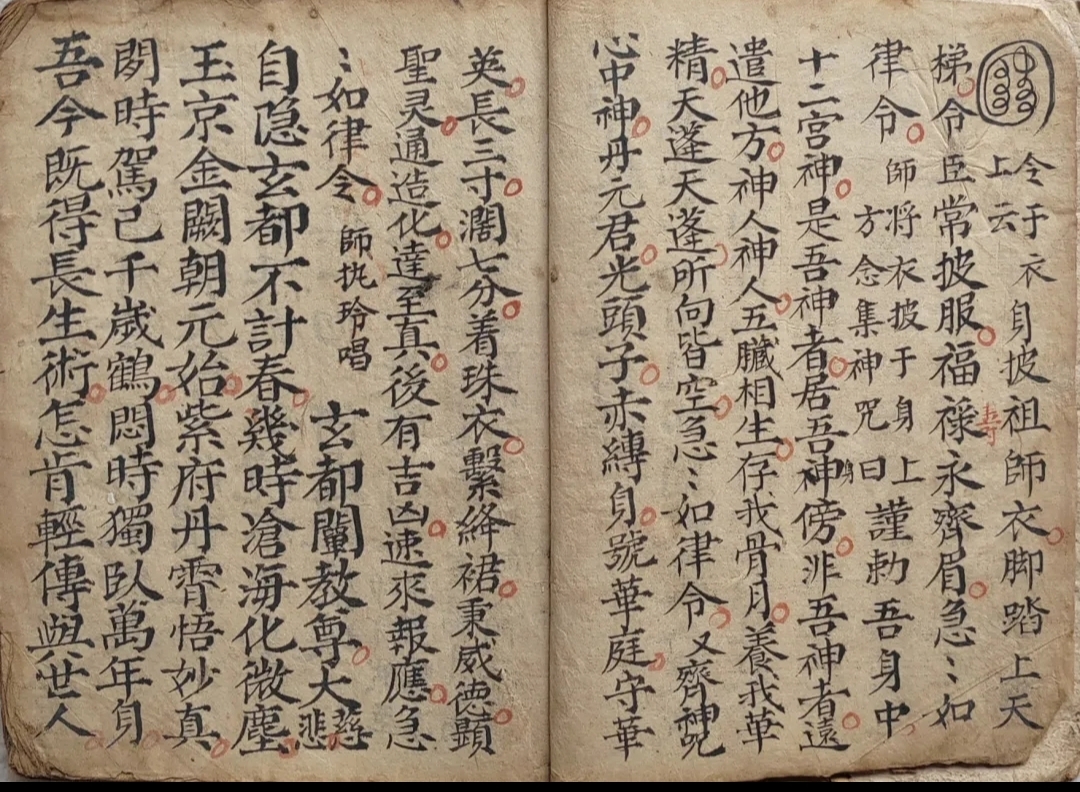 令于衣上云身披祖師衣脚踏上天
梯令臣常披服福祿壽永齊眉急〻如
律令師将衣披于身上方念集神咒曰謹勅吾身中
十二宫神是吾神者居吾神身傍非吾神者遠
遣他方神人神人五臟相生存我骨月養我華
精天蓬天蓬所向皆空急〻如律令又齊神咒
心中神丹元君光頭子赤縛身號華庭守華
英長三寸濶七分着珠衣繫絳裙秉威德顯
聖灵通造化達至真後有吉凶速來報應急
〻如律令師执玲唱玄都闡教尊大慈悲
自隐玄都不計春幾時滄海化微塵
玉京金闕朝元始紫府丹霄悟妙真
時駕己千歲鶴悶時獨臥萬年身
吾今既得長生術怎肯輕傳與世人